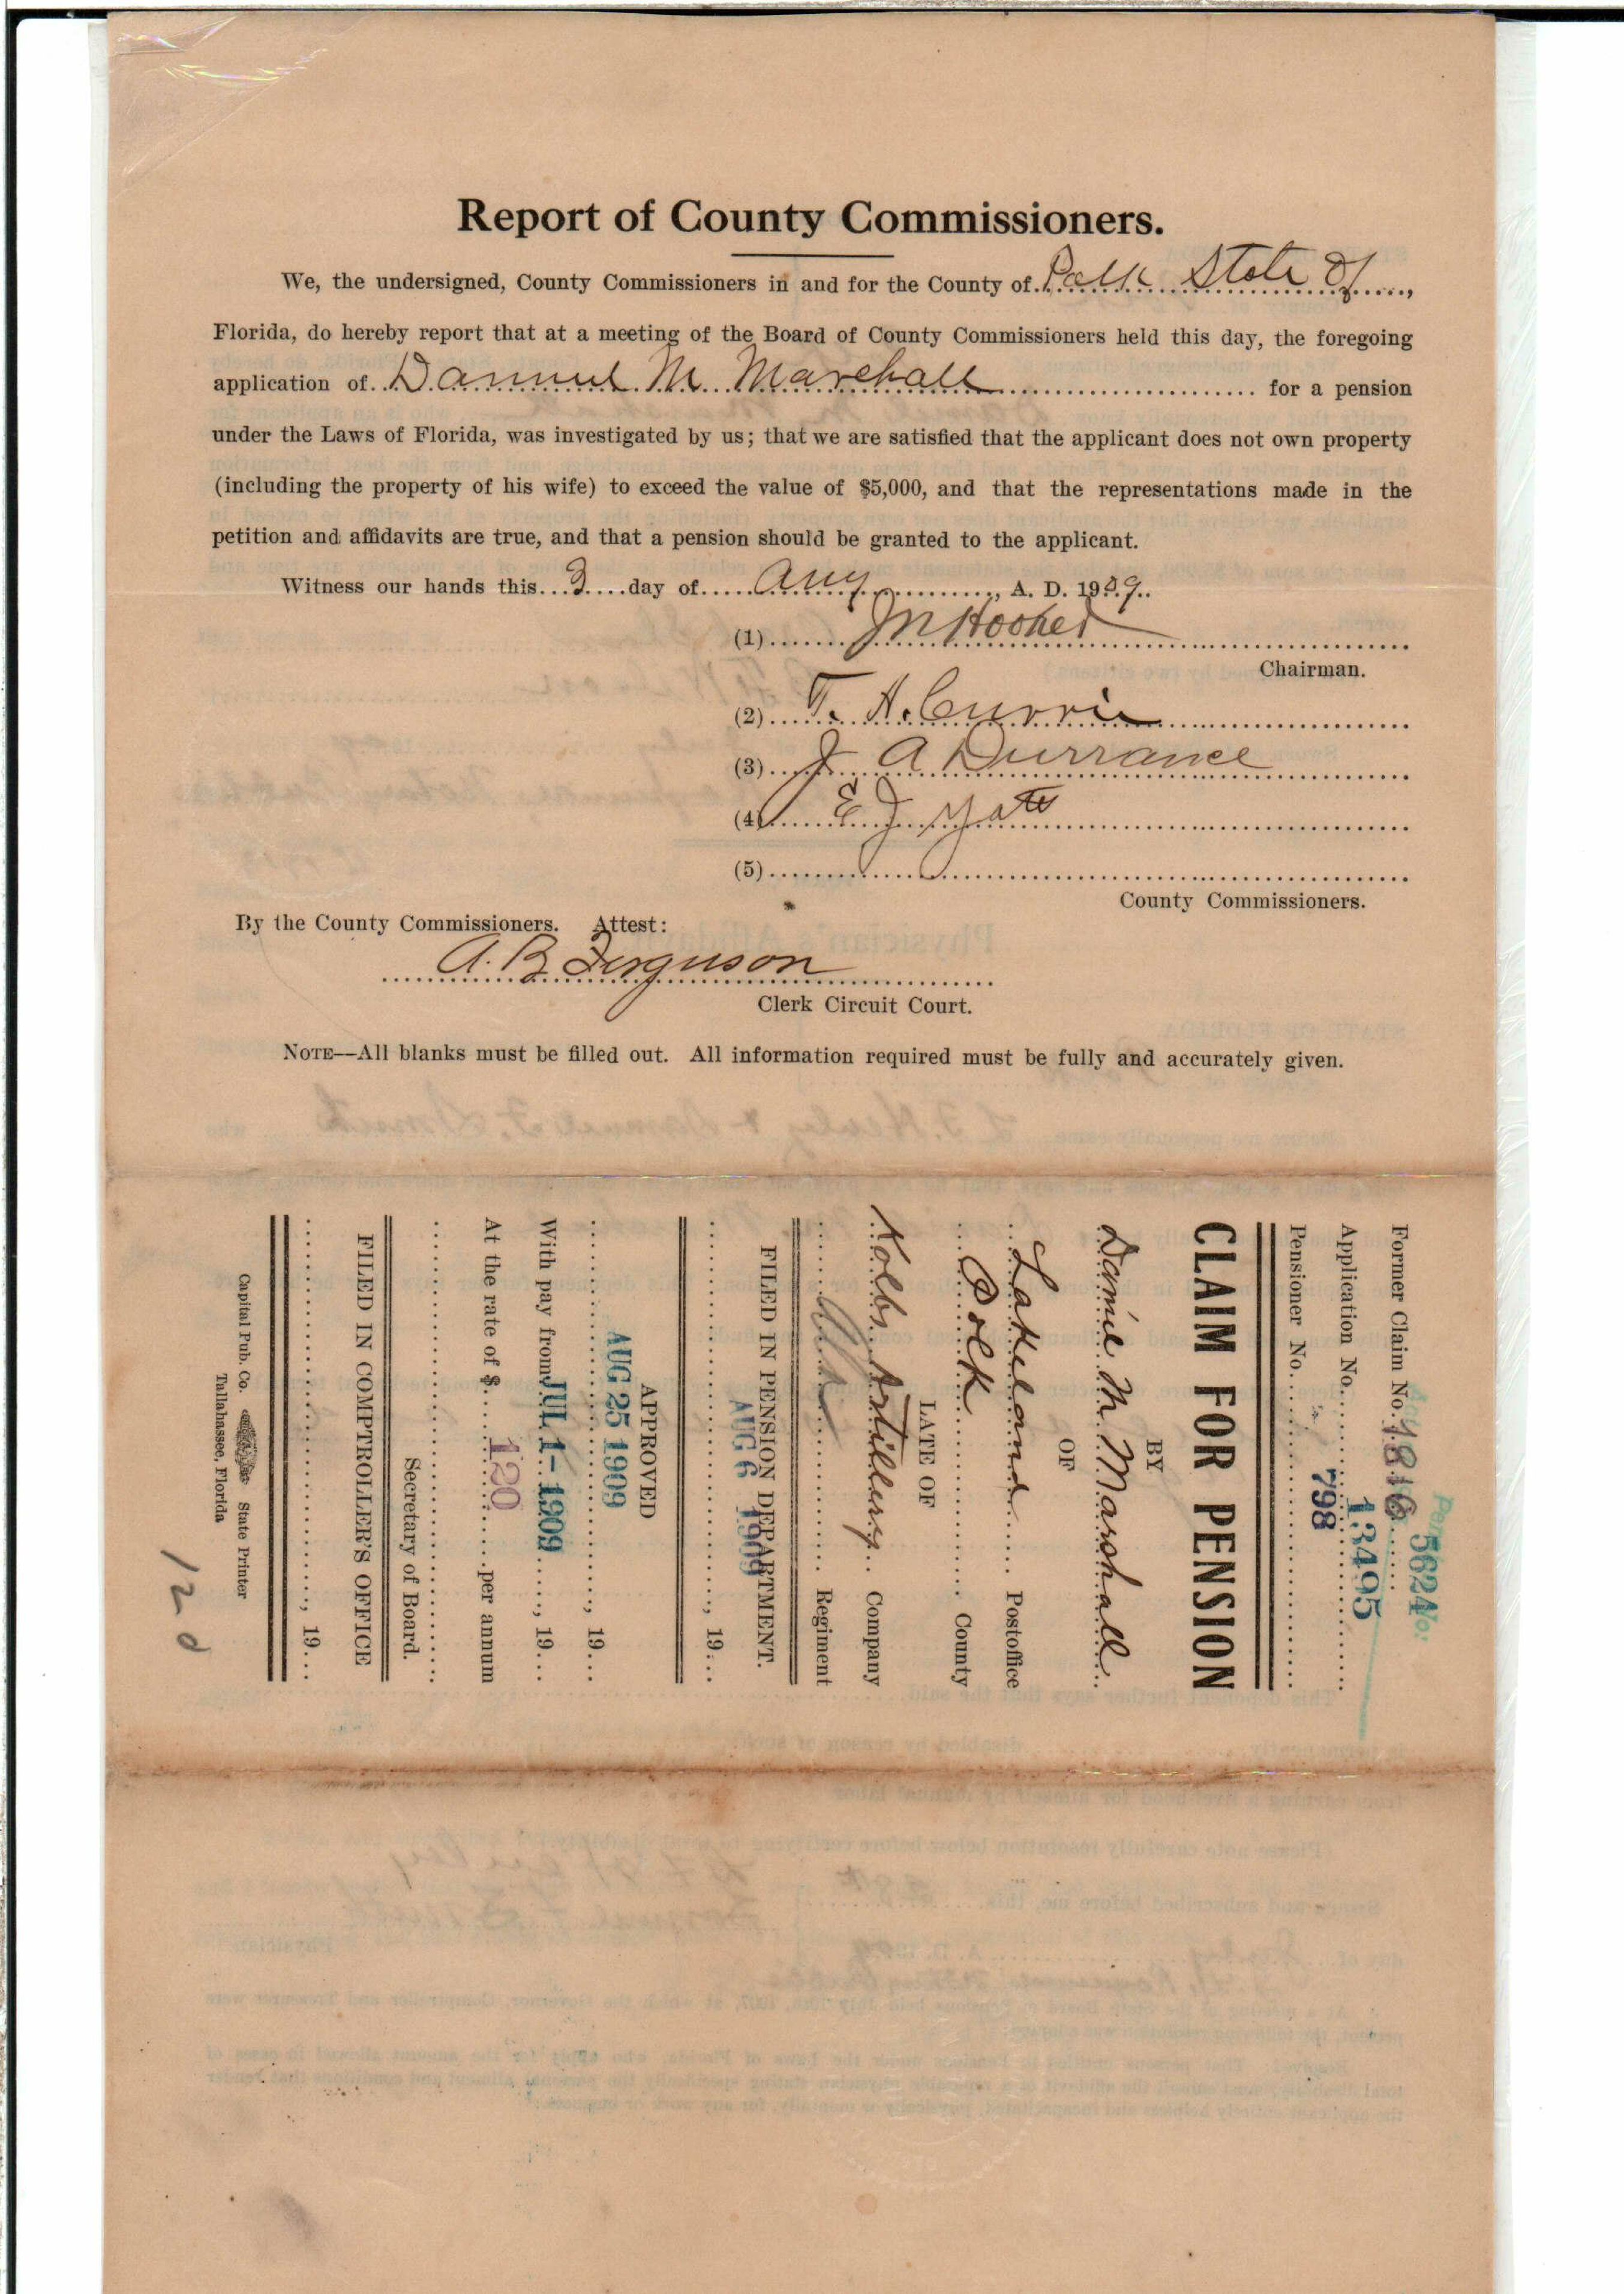 Report of County Commissioners.
We, the undersigned, County Commissioners in and for the County of Polk State of,
Florida, do hereby report that at a meeting of the Board of County Commissioners held this day, the foregoing
application of M. Marshall for a pension
under the Laws of Florida, was investigated by us; that we are satisfied that the applicant does not own property
(including the property of his wife) to exceed the value of $5,000, and that the representations made in the
petition and affidavits are true, and that a pension should be granted to the applicant.
Witness our hands this 3 day of Aug, A. D. 1909.
(1) Hooker
Chairman.
(2) T. H. Currie
(3) J A Durrance
(4) E J Yate
(5)
County Commissioners.
By the County Commissioners. Attest:
A. B Ferguson
Clerk Circuit Court.
NOTE—All blanks must be filled out. All information required must be fully and accurately given.
5624
Former Claim No.
Application No. 13495
Pensioner No. 798
CLAIM FOR PENSION
BY
M. Marshall
OF
Lakeland Postoffice
Polk County
LATE OF
Kolbs Artillery Company
Regiment
FILED IN PENSION DEPARTMENT.
AUG 6 1909, 19
APPROVED
AUG 25 1909, 19
With pay from JUL 1 - 1909, 19
At the rate of $ 120 per annum
Secretary of Board.
FILED IN COMPTROLLER'S OFFICE
, 19
Capital Pub. Co. State Printer
Tallahassee, Florida